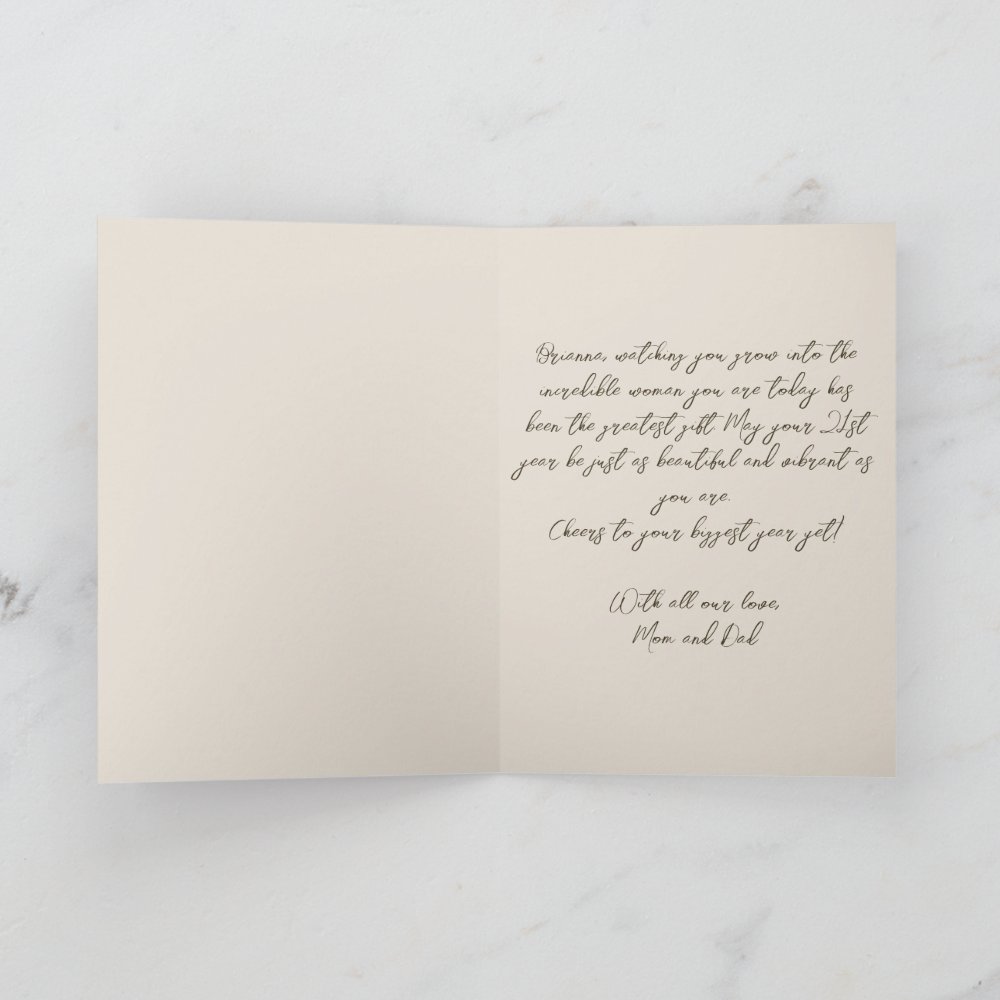 Brianna, watching you grow into the
incredible woman you are today has
been the greatest gift. May your 21st
year be just as beautiful and vibrant as
you are.
Cheers to your biggest year yet!
With all our love,
Mom and Dad